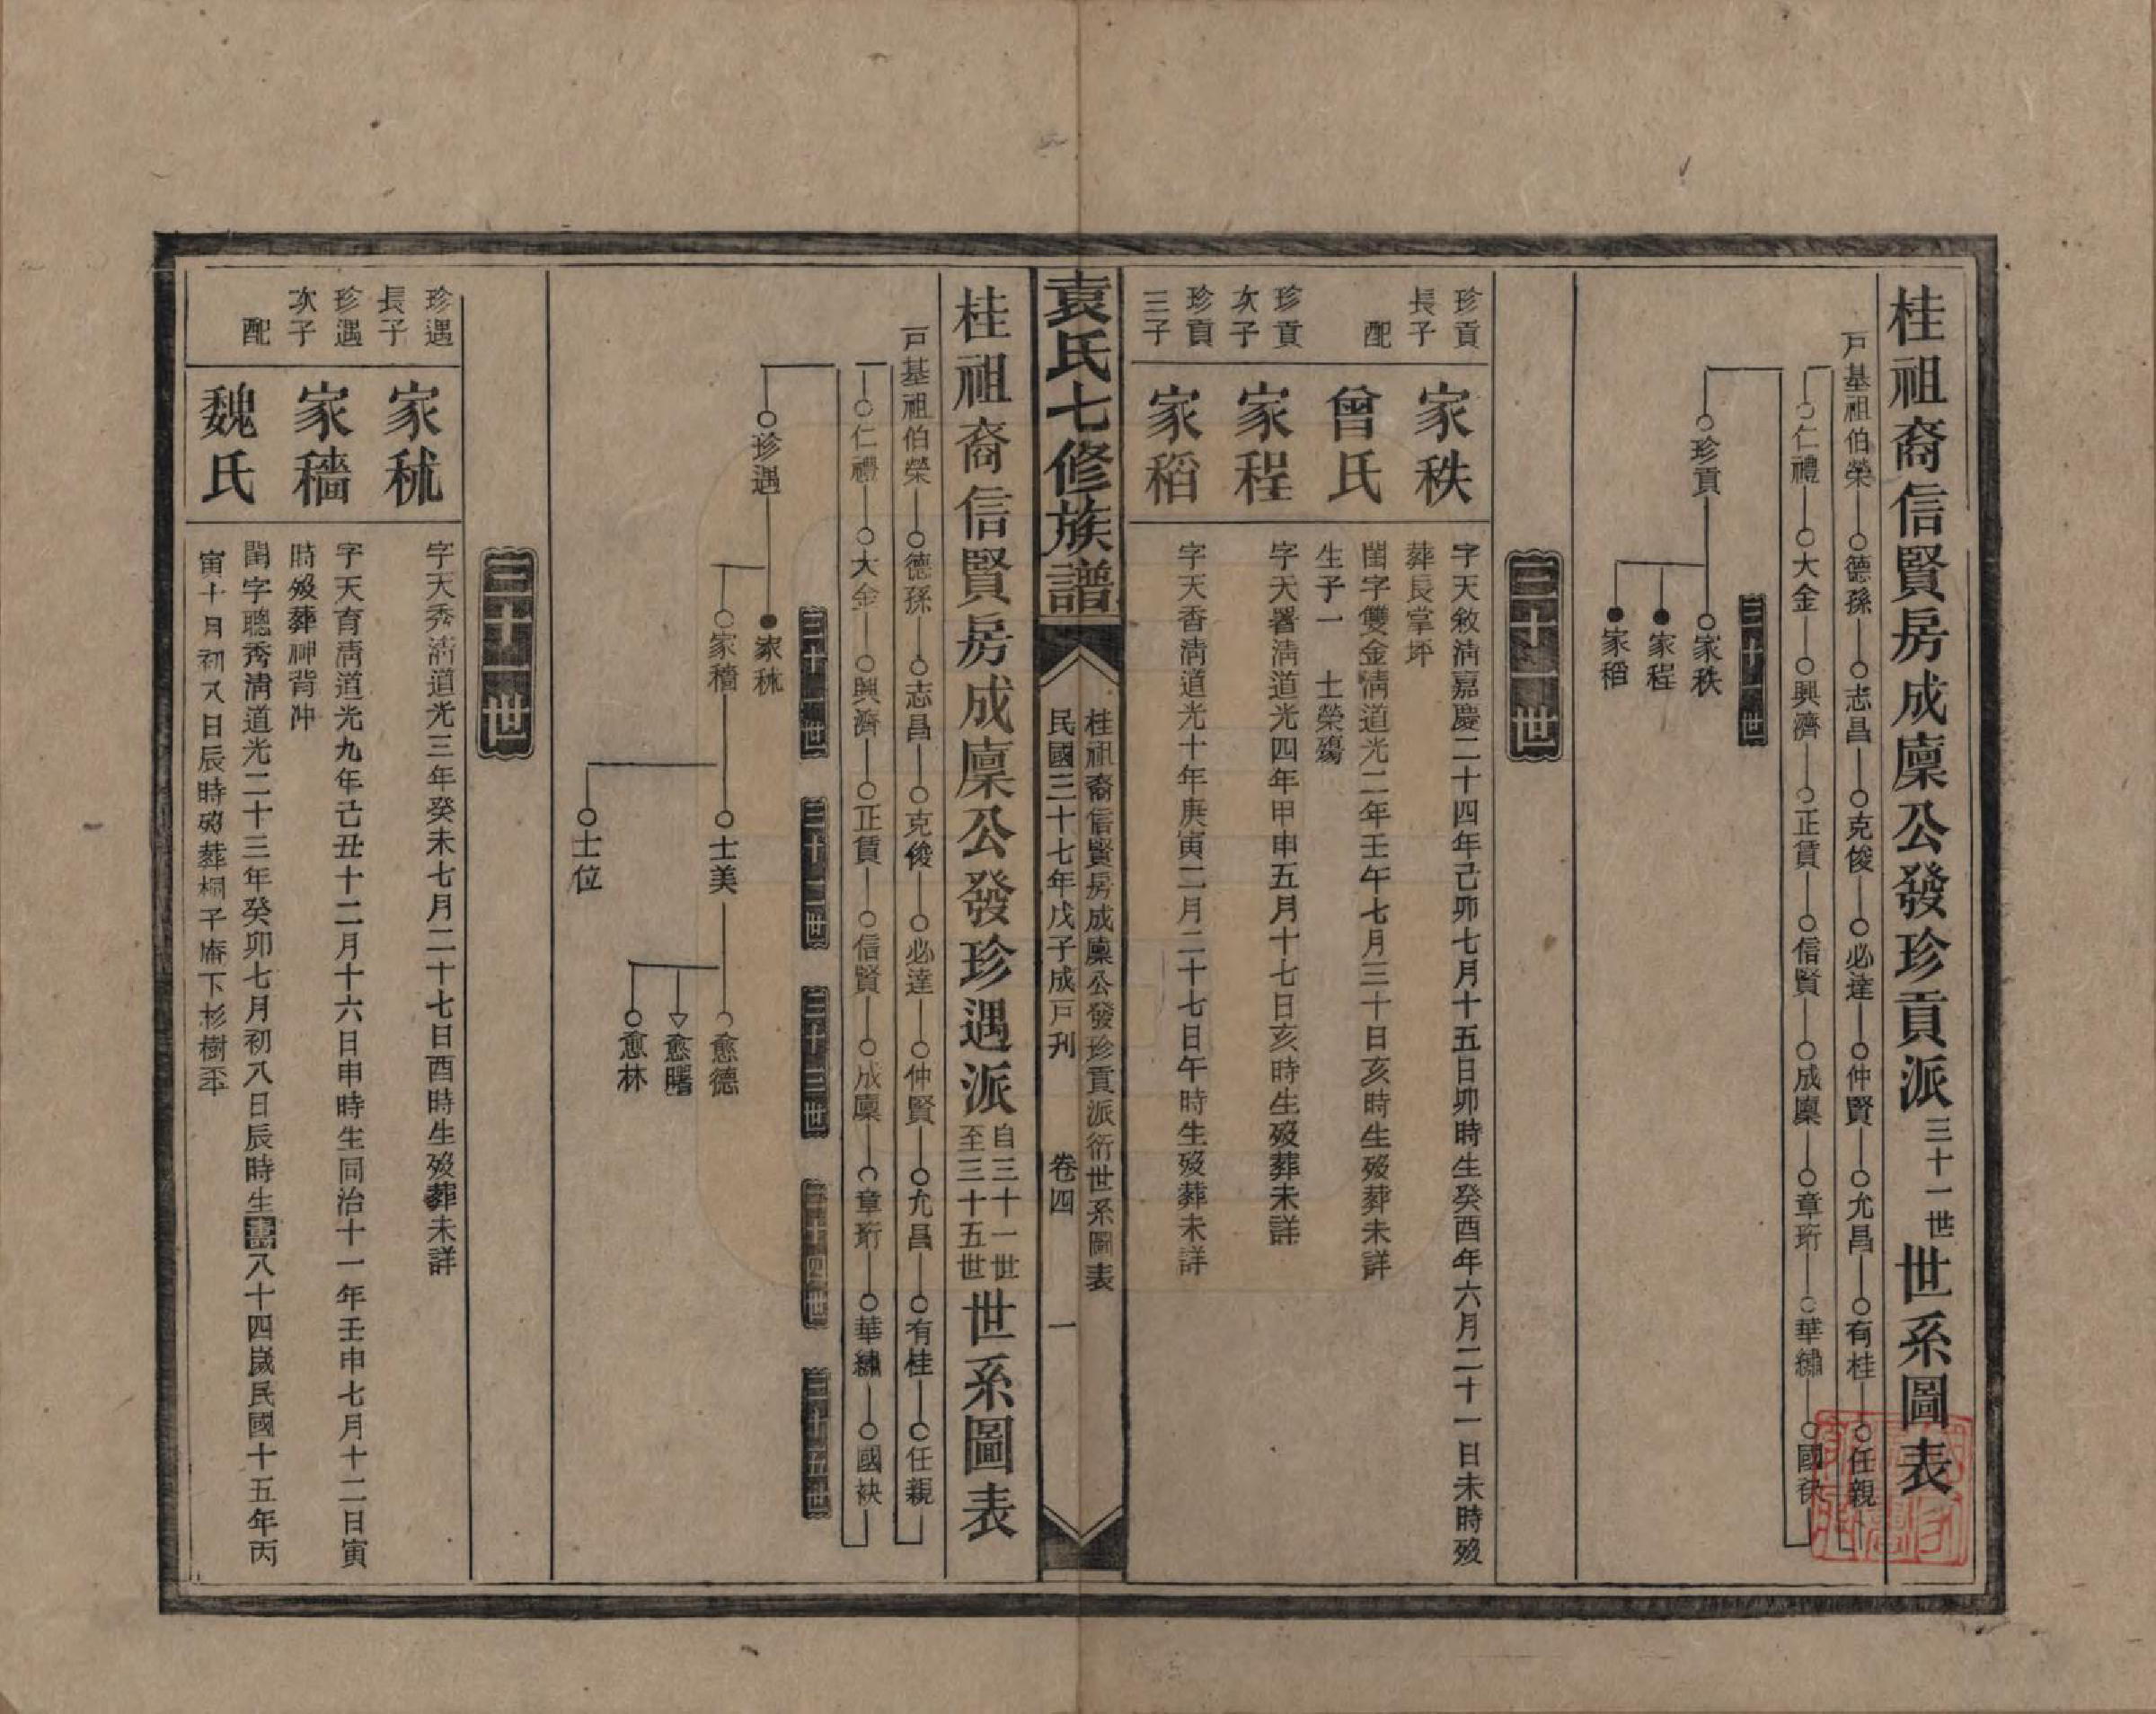 桂祖裔信賢房成廩公發珍貢派三十一世世系圖表
戶基祖伯榮 德孫 志昌 克俊 必達 仲賢 允昌 有桂 任親
仁禮 大金 興濟 正賃 信賢 成廩 章珩 華繡 國袂
三十一世
珍貢 家秩
家程
家稻
三十一世
珍貢長子 家秩 字天敘清嘉慶二十四年己卯七月十五日卯時生癸酉年六月二十一日未時歿
葬長掌坪
配 曾氏 閨字雙金清道光二年壬午七月三十日亥時生歿葬未詳
生子一 士榮殤
珍貢次子 家程 字天署清道光四年甲申五月十七日亥時生歿葬未詳
珍貢三子 家稻 字天香清道光十年庚寅二月二十七日午時生歿葬未詳
袁氏七修族譜
桂祖裔信賢房成廩公發珍貢派衍世系圖表
民國三十七年戊子成戶刋 卷四 一
桂祖裔信賢房成廩公發珍遇派自三十一世至三十五世世系圖表
戶基祖伯榮 德孫 志昌 克俊 必達 仲賢 允昌 有桂 任親
仁禮 大金 興濟 正賃 信賢 成廩 章珩 華繡 國袂
三十一世 三十二世 三十三世 三十四世 三十五世
珍遇 家秫
家穡 士美 愈德
愈曙
愈林
士位
三十一世
珍遇長子 家秫 字天秀清道光三年癸未七月二十七日酉時生歿葬未詳
珍遇次子 家穡 字天育清道光九年己丑十二月十六日申時生同治十一年壬申七月十二日寅
時歿葬神背冲
配 魏氏 閨字聰秀清道光二十三年癸卯七月初八日辰時生壽八十四歲民國十五年丙
寅十月初八日辰時歿葬桐子庵下杉樹坪